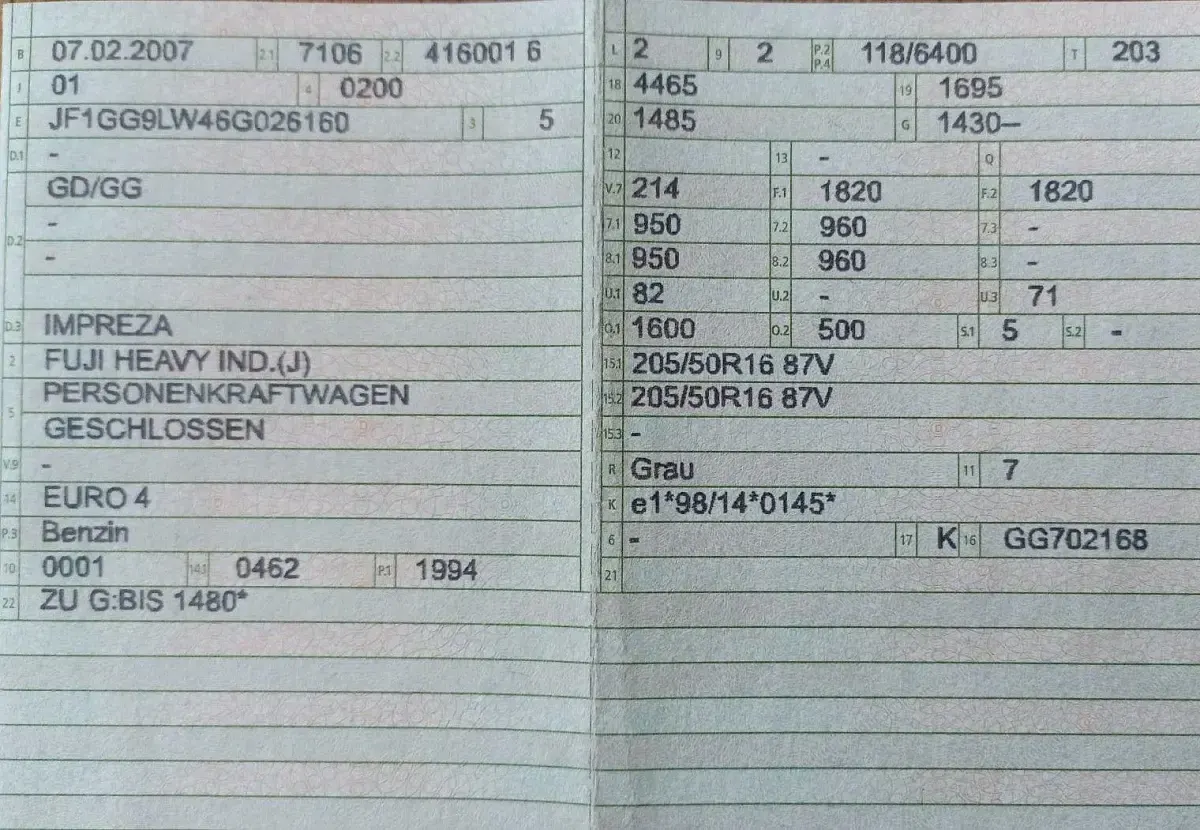 B 07.02.2007 2.1 7106 2.2 416001 6
J 01 4 0200
E JF1GG9LW46G026160 3 5
D.1 -
GD/GG
D.2 -
-
D.3 IMPREZA
2 FUJI HEAVY IND.(J)
5 PERSONENKRAFTWAGEN
GESCHLOSSEN
V.9 -
14 EURO 4
P.3 Benzin
10 0001 14.1 0462 P.1 1994
22 ZU G:BIS 1480*
L 2 9 2 P.2 P.4 118/6400 T 203
18 4465 19 1695
20 1485 G 1430–
12 13 - Q
V.7 214 F.1 1820 F.2 1820
7.1 950 7.2 960 7.3 -
8.1 950 8.2 960 8.3 -
U.1 82 U.2 - U.3 71
O.1 1600 O.2 500 S.1 5 S.2 -
15.1 205/50R16 87V
15.2 205/50R16 87V
15.3 -
R Grau 11 7
K e1*98/14*0145*
6 - 17 K 16 GG702168
21